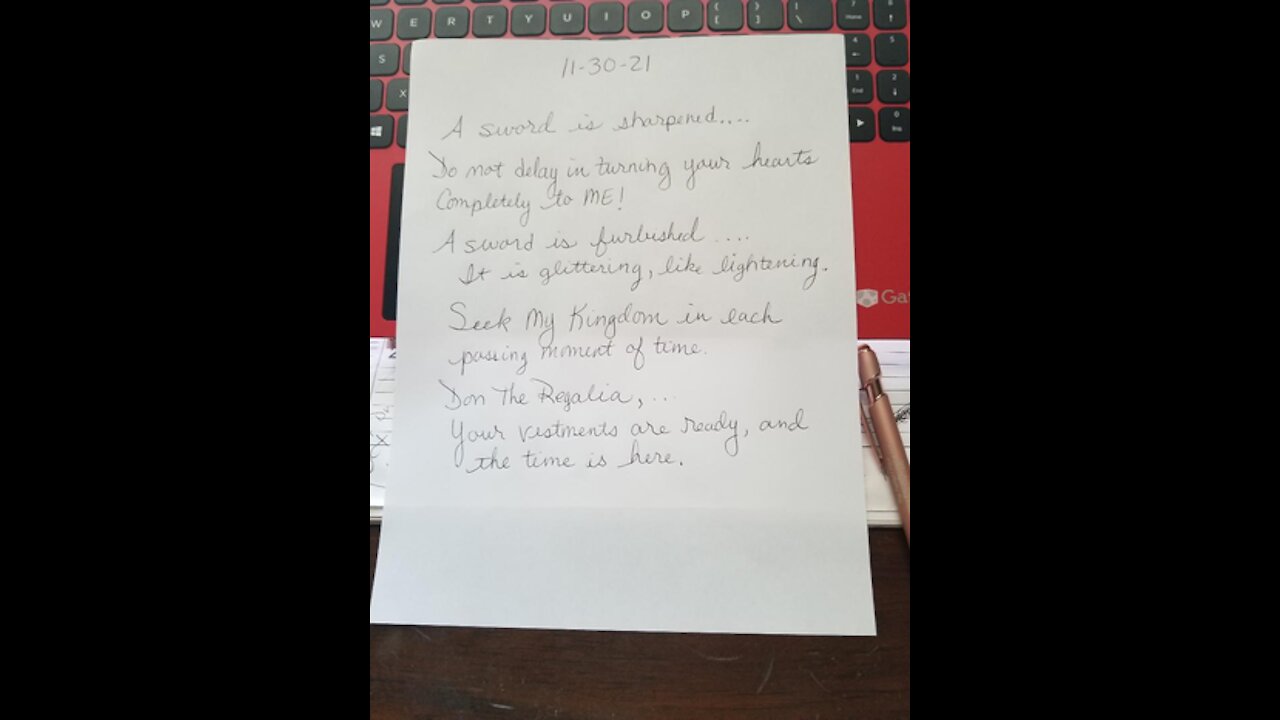 W E R T Y U I O P { [ } ] | \ 7 Home 8 ↑
S 4 ← 5
X 1 End 2 ↓
0 Ins
Ga
11-30-21
A sword is sharpened....
Do not delay in turning your hearts
Completely to ME!
A sword is furbished ....
It is glittering, like lightening.
Seek My Kingdom in each
passing moment of time.
Don The Regalia, ...
Your vestments are ready, and
the time is here.